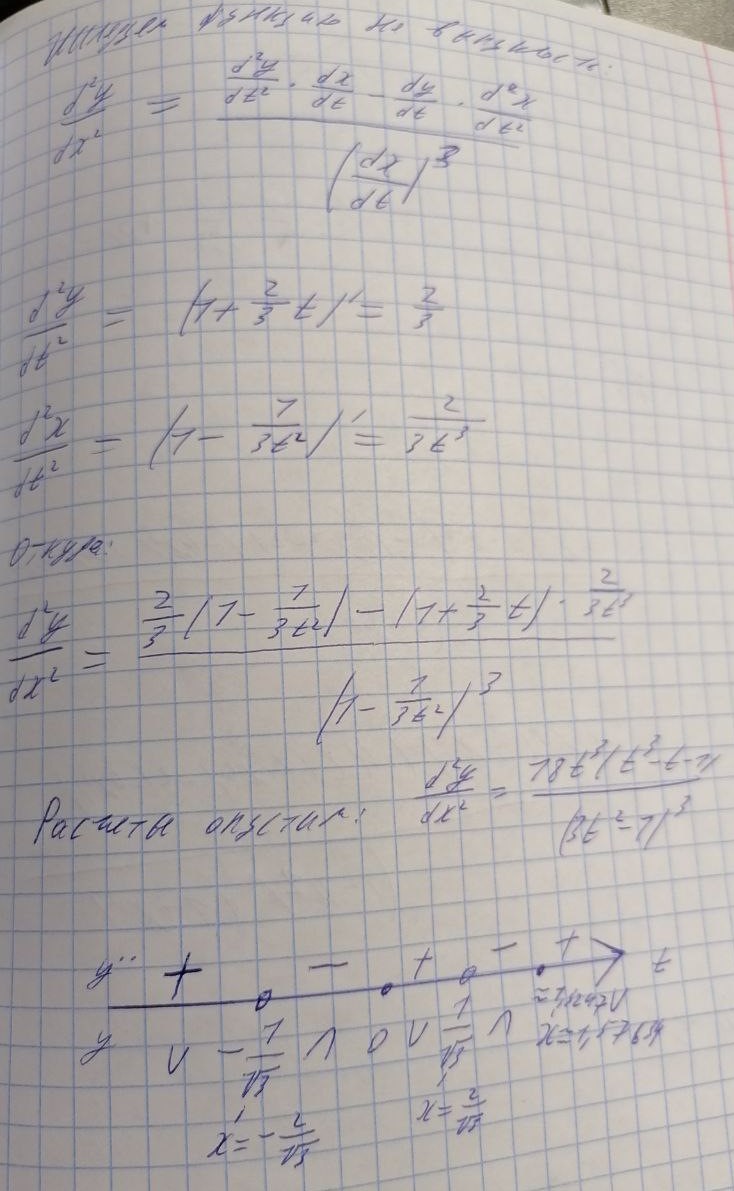 Исследуем функцию на выпуклость:
d²y/dx² = (d²y/dt² · dx/dt − dy/dt · d²x/dt²) / (dx/dt)³
d²y/dt² = (1 + 2/3 t)' = 2/3
d²x/dt² = (1 − 1/(3t²))' = 2/(3t³)
Откуда:
d²y/dx² = (2/3 (1 − 1/(3t²)) − (1 + 2/3 t) · 2/(3t³)) / (1 − 1/(3t²))³
Расчеты опустим: d²y/dx² = 18t³(t³−t−1) / (3t²−1)³
y'' + − + − + t
y ∪ −1/√3 ∩ 0 ∪ 1/√3 ∩
x = −2/√3 x = 2/√3